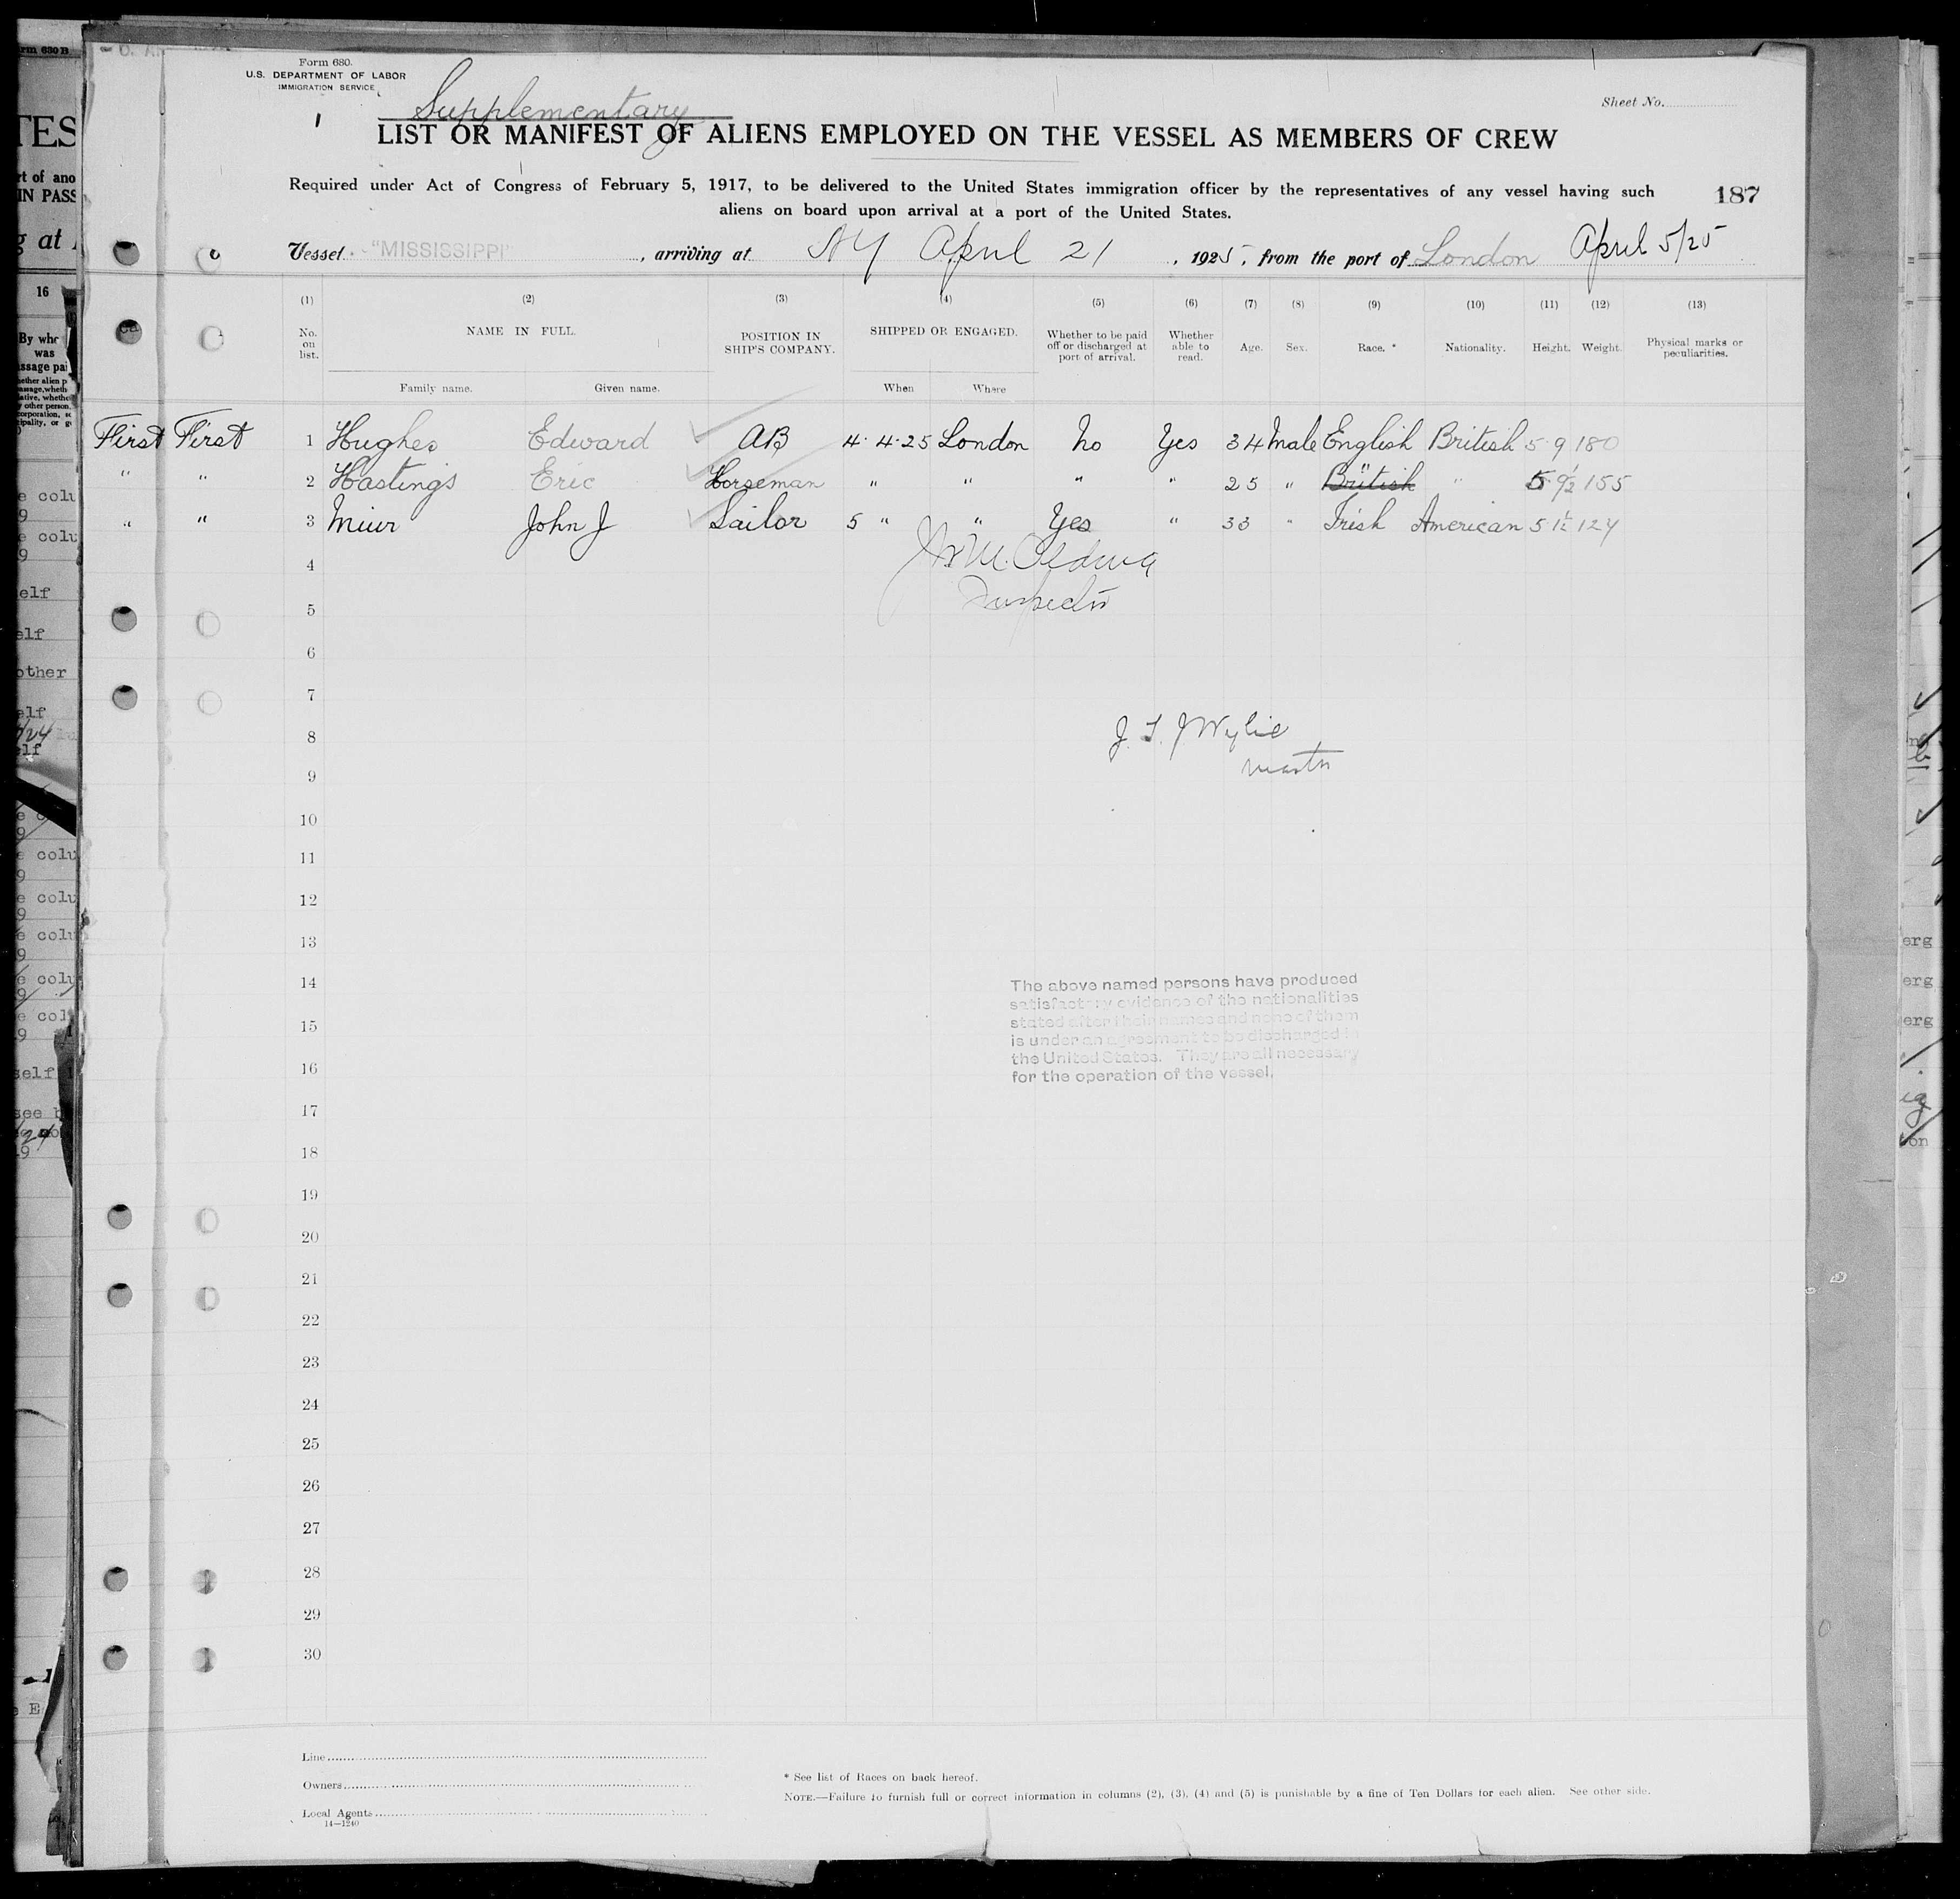 Form 680.
U.S. DEPARTMENT OF LABOR
IMMIGRATION SERVICE
Sheet No.
Supplementary
LIST OR MANIFEST OF ALIENS EMPLOYED ON THE VESSEL AS MEMBERS OF CREW
Required under Act of Congress of February 5, 1917, to be delivered to the United States immigration officer by the representatives of any vessel having such
aliens on board upon arrival at a port of the United States.
187
Vessel "MISSISSIPPI", arriving at NY April 21, 1925, from the port of London April 5/25
(1) (2) (3) (4) (5) (6) (7) (8) (9) (10) (11) (12) (13)
No. on list. NAME IN FULL. POSITION IN SHIP'S COMPANY. SHIPPED OR ENGAGED. Whether to be paid off or discharged at port of arrival. Whether able to read. Age. Sex. Race. * Nationality. Height. Weight. Physical marks or peculiarities.
Family name. Given name. When Where
First First 1 Hughes Edward AB 4·4·25 London No Yes 34 Male English British 5·9 180
" " 2 Hastings Eric Horseman " " " " 25 " British " " 5 9½ 155
" " 3 Muir John J Sailor 5 " " Yes " 33 " Irish American 5 124
4
Inspector
5
6
7
8 J. Wylie
master
9
10
11
12
13
14
15
16
The above named persons have produced
satisfactory evidence of the nationalities
stated after their names and none of them
is under an agreement to be discharged in
the United States. They are all necessary
for the operation of the vessel.
17
18
19
20
21
22
23
24
25
26
27
28
29
30
Line
Owners
Local Agents
14—1240
* See list of Races on back hereof.
NOTE.—Failure to furnish full or correct information in columns (2), (3), (4) and (5) is punishable by a fine of Ten Dollars for each alien. See other side.